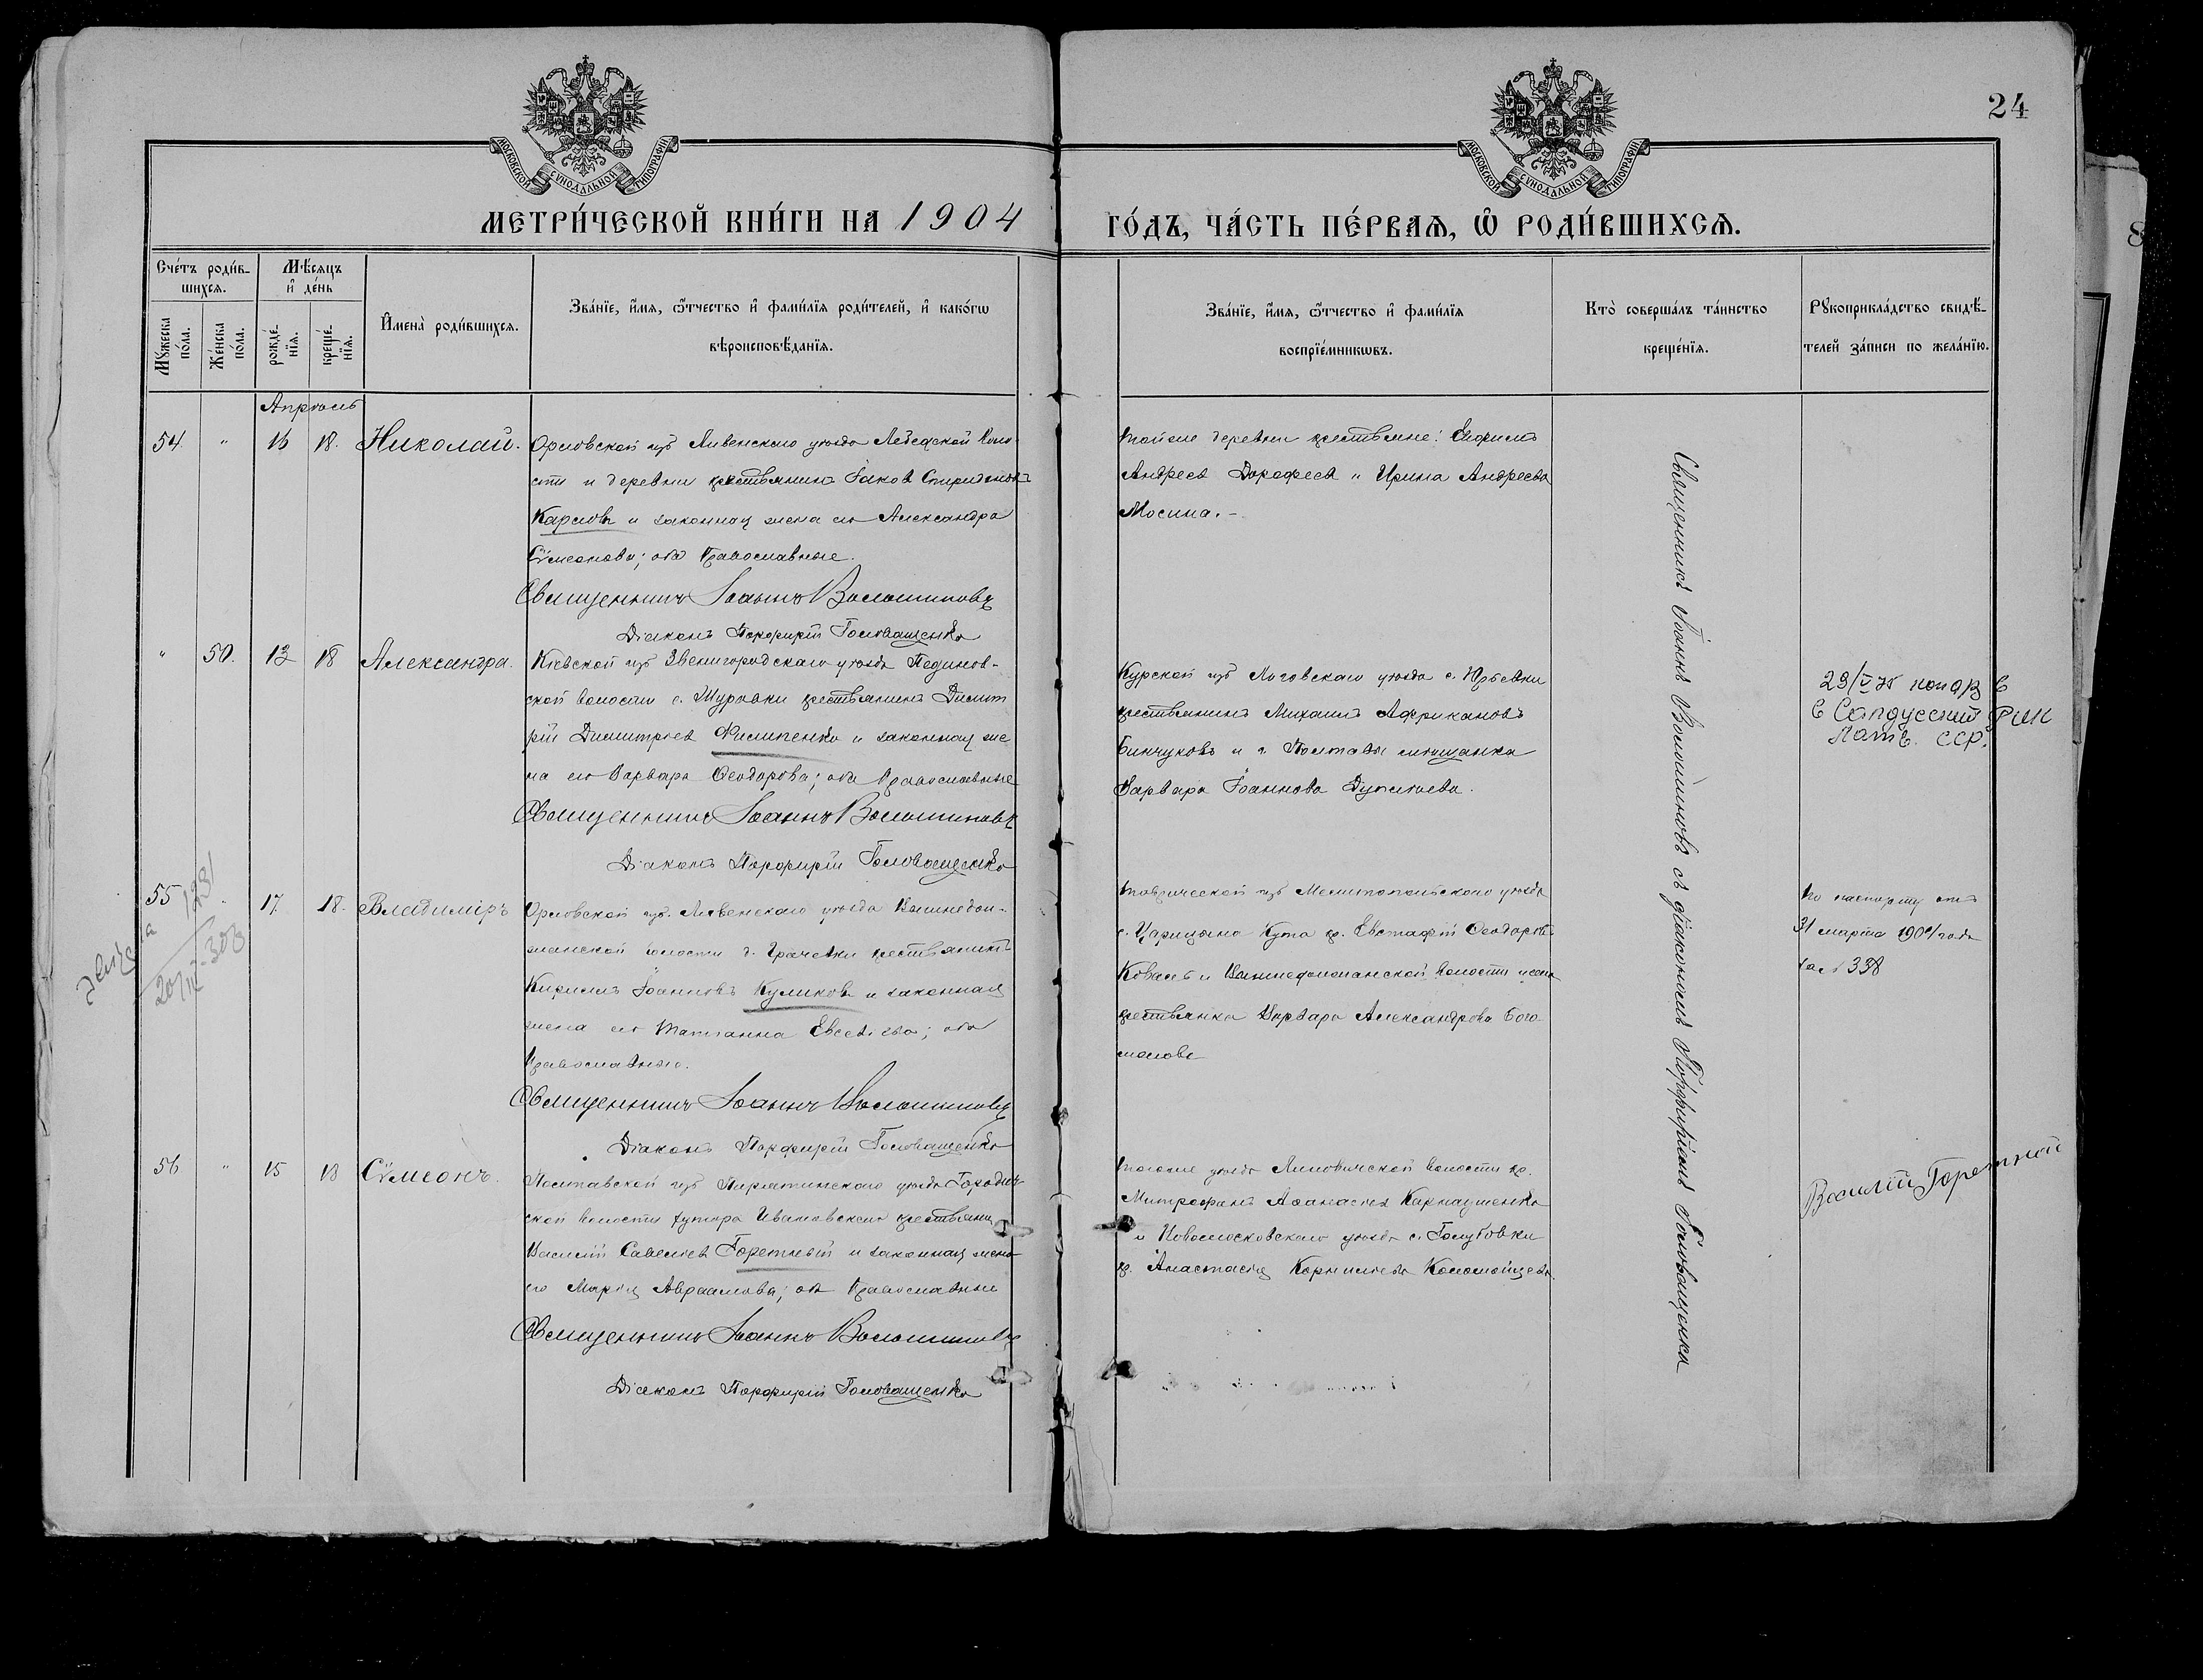 24
МОСКОВСКОЙ СУНОДАЛЬНОЙ ТИПОГРАФІИ
МОСКОВСКОЙ СУНОДАЛЬНОЙ ТИПОГРАФІИ
МЕТРИ́ЧЕСКОЙ КНИ́ГИ НА 1904
ГО́ДЪ, ЧА́СТЬ ПЕ́РВАѦ, Ѿ РОДИ́ВШИХСѦ.
Сче́тъ роди́в-
шихсѧ.
Мꙋжеска по́ла.
Же́нска по́ла.
Мѣ́сѧцъ и де́нь
рожде́-нїѧ.
креще́-нїѧ.
Имена̀ роди́вшихсѧ.
Зва́нїе, и́мѧ, ѻ́тчество и фами́лїѧ роди́телей, и како́гѡ
вѣроисповѣ́данїѧ.
Зва́нїе, и́мѧ, ѻ́тчество и фами́лїѧ
воспрїе́мникѡвъ.
Кто̀ соверша́лъ та́инство
креще́нїѧ.
Рꙋкоприкла́дство свидѣ́-
телей за́писи по жела́нїю.
Апрѣль
54 " 16 18. Николай.
Орловской губ Ливенскаго уѣзда Воло
сти и деревни крестьянинъ Іаковъ Спиридоновъ
Карловъ и законная жена его Александра
Сѵмеонова; оба Православные.
Священникъ Іоаннъ Волошиновъ
Діаконъ Порфирій Головащенко
тойже деревни крестьяне: Ефремъ
Андреевъ Дорофеевъ и Ирина Андреева
Мосина. -
" 50. 13 18 Александра.
Кіевской губ Звенигородскаго уѣзда Пединов-
ской волости с. Журовки крестьянинъ Димит
рій Димитріевъ Филипенко и законная же
на его Варвара Ѳеодорова; оба Православные
Священникъ Іоаннъ Волошиновъ
Діаконъ Порфирій Головащенко
Курской губ Льговскаго уѣзда с. Юрьевки
крестьянинъ Михаилъ Африкановъ
Бинчуковъ и г. Полтавы мѣщанка
Варвара Іоаннова
29/V 75 копия в
в Салдусский РИК
Латв. ССР.
55 17. 18. Владиміръ
Орловской губ. Ливенскаго уѣзда Вышнедол-
жанской волости д. Грачевки крестьянинъ
Кириллъ Іоанновъ Куликовъ и законная
жена его Татіанна Евсеевна; оба
Православные.
Священникъ Іоаннъ Волошиновъ
Діаконъ Порфирій Головащенко
1231
20/III-303
Таврической губ Мелитопольскаго уѣзда
с. Царицына Кута кр. Евстафій Ѳеодоровъ
Коваль и Вышнедолжанской волости
крестьянка Варвара Александрова Бого
молова
по паспорту отъ
31 марта 1904 года
за № 338
56 " 15 18 Сѵмеонъ.
Полтавской губ Пирятинскаго уѣзда Городис
ской волости хутора Ивановскаго крестьянинъ
Василій Савельевъ Горетный и законная жена
его Марія Авраамова; оба Православные
Священникъ Іоаннъ Волошиновъ
Діаконъ Порфирій Головащенко
тогоже уѣзда волости кр.
Митрофанъ Аѳанасіевъ Карнаушенко
и Новомосковскаго уѣзда с. Голубовки
кр. Анастасія Корнилиева Коломойцева.
Василій Горетный
Священникъ Іоаннъ Волошиновъ съ діакономъ Порфиріемъ Головащенко